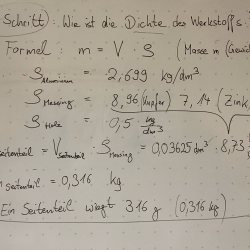 Schritt): Wie ist die Dichte des Werkstoffs
Formel: m = V · ρ (Masse m (Gewich
ρ Aluminium = 2,699 kg/dm³
ρ Messing = 8,96 (Kupfer) 7,14 (Zink)
ρ Holz = 0,5 kg/dm³
seitenteil = V Seitenteil · ρ Messing = 0,03625 dm³ · 8,73
Seitenteil = 0,316 kg
Ein Seitenteil wiegt 316 g (0,316 kg)